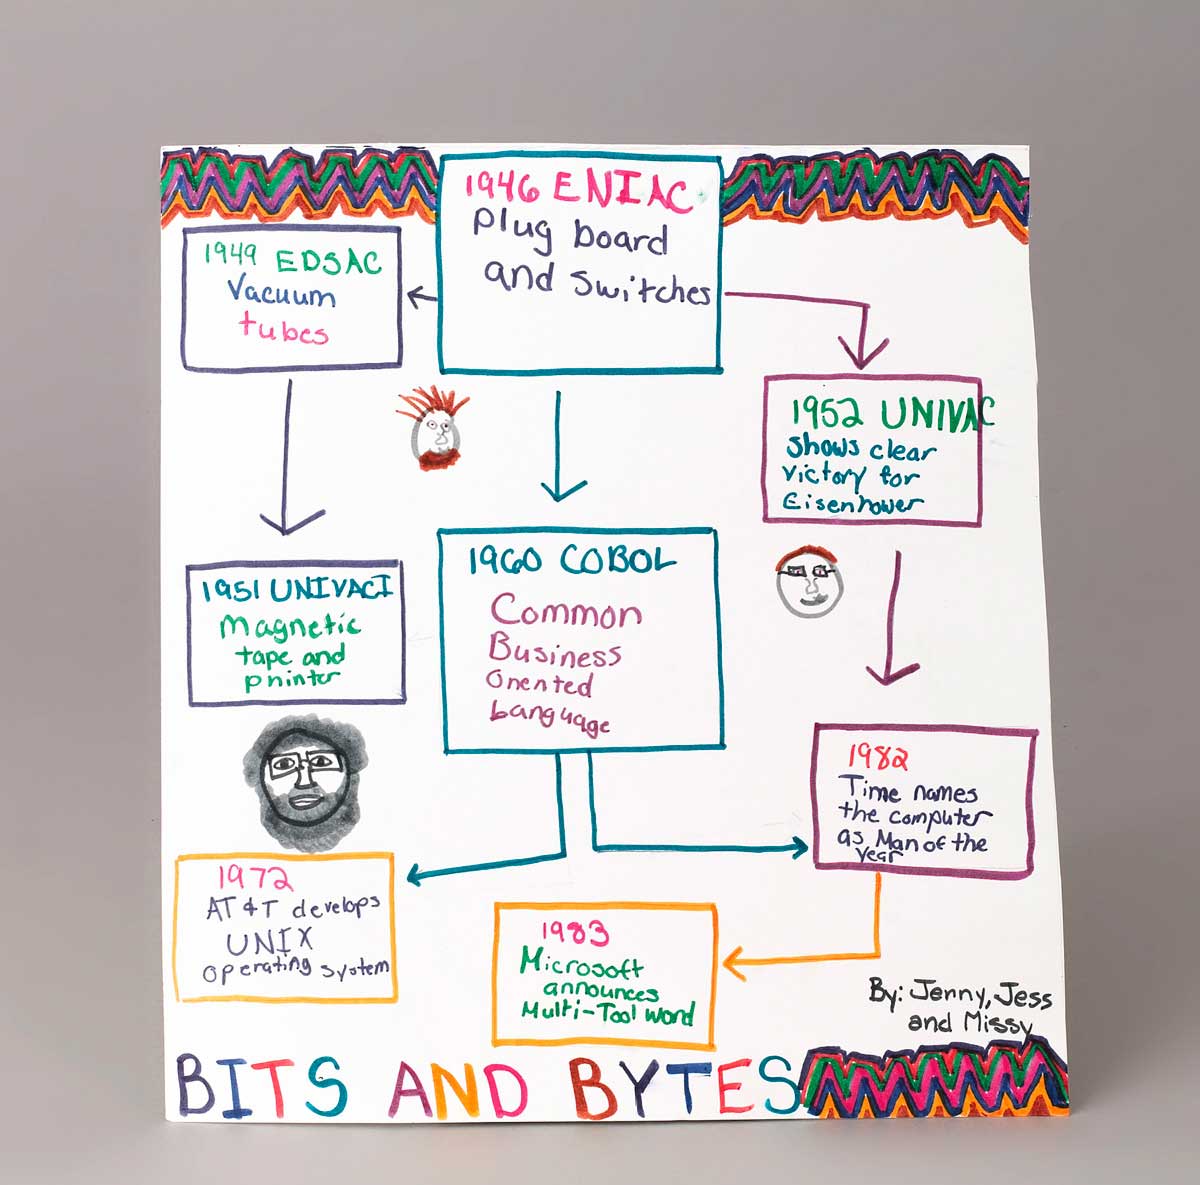 1946 ENIAC
Plug board
and Switches
1949 EDSAC
Vacuum
tubes
1952 UNIVAC
shows clear
victory for
Eisenhower
1951 UNIVAC I
Magnetic
tape and
printer
1960 COBOL
Common
Business
Oriented
Language
1982
Time names
the computer
as Man of the
year
1972
AT&T develops
UNIX
operating system
1983
Microsoft
announces
Multi-Tool Word
By: Jenny, Jess
and Missy
BITS AND BYTES